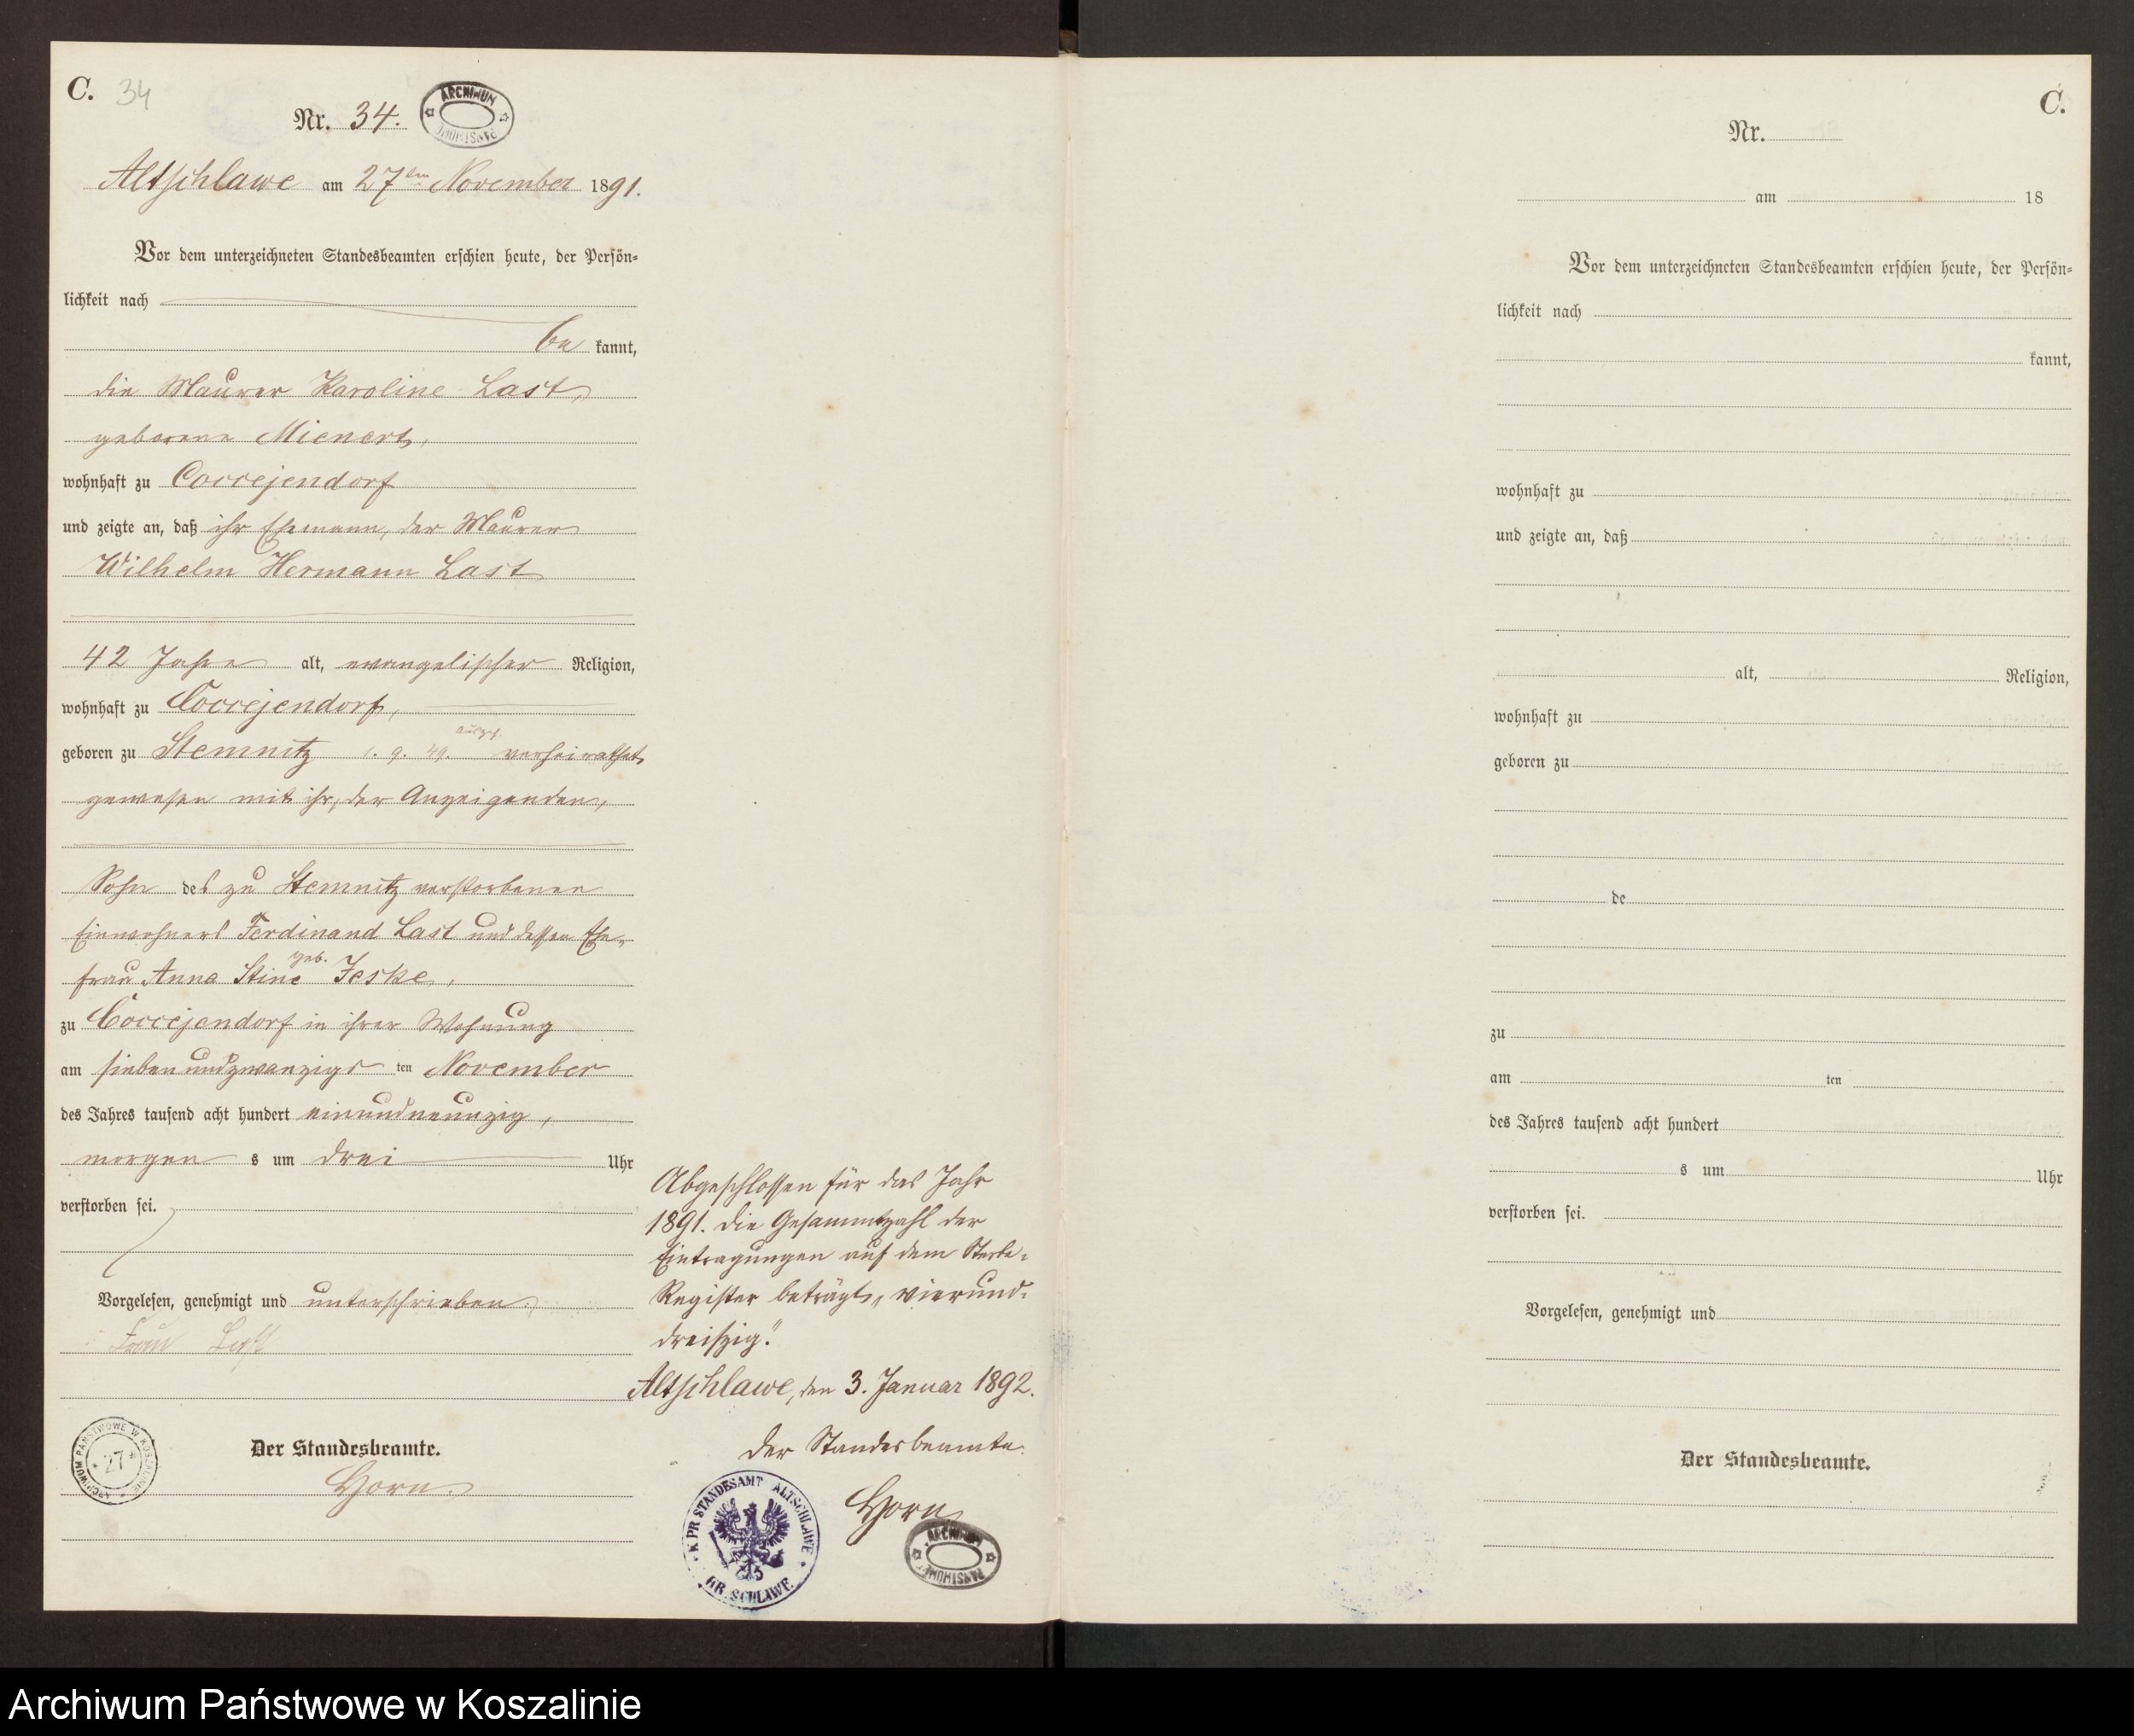 C. 34
Nr. 34.
ARCHIWUM PAŃSTWOWE
Altschlawe am 27ten November 1891.
Vor dem unterzeichneten Standesbeamten erschien heute, der Persön-
lichkeit nach
be kannt,
die Maurer Karoline Last,
geborene Mienert,
wohnhaft zu Coccejendorf
und zeigte an, daß ihr Ehemann, der Maurer
Wilhelm Hermann Last
42 Jahre alt, evangelischer Religion,
wohnhaft zu Coccejendorf,
geboren zu Stemnitz 1. 9. 49. verheirathet
gewesen mit ihr, der Anzeigenden,
Sohn des zu Stemnitz verstorbenen
Einwohners Ferdinand Last und dessen Ehe-
frau Anna Stine geb. Jeske,
zu Coccejendorf in ihrer Wohnung
am siebenundzwanzigs ten November
des Jahres tausend acht hundert einundneunzig,
morgen s um drei Uhr
verstorben sei.
Vorgelesen, genehmigt und unterschrieben.
Frau Last
Der Standesbeamte.
Horn.
ARCHIWUM PAŃSTWOWE W KOSZALINIE
* 27 *
Abgeschlossen für das Jahr
1891. Die Gesammtzahl der
Eintragungen auf dem Sterbe-
Register beträgt „vierund-
dreißig".
Altschlawe, den 3. Januar 1892.
Der Standesbeamte.
Horn
K. PR STANDESAMT ALTSCHLAWE
KR. SCHLAWE
ARCHIWUM PAŃSTWOWE
C.
Nr.
am 18
Vor dem unterzeichneten Standesbeamten erschien heute, der Persön-
lichkeit nach
kannt,
wohnhaft zu
und zeigte an, daß
alt, Religion,
wohnhaft zu
geboren zu
de
zu
am ten
des Jahres tausend acht hundert
s um Uhr
verstorben sei.
Vorgelesen, genehmigt und
Der Standesbeamte.
Archiwum Państwowe w Koszalinie